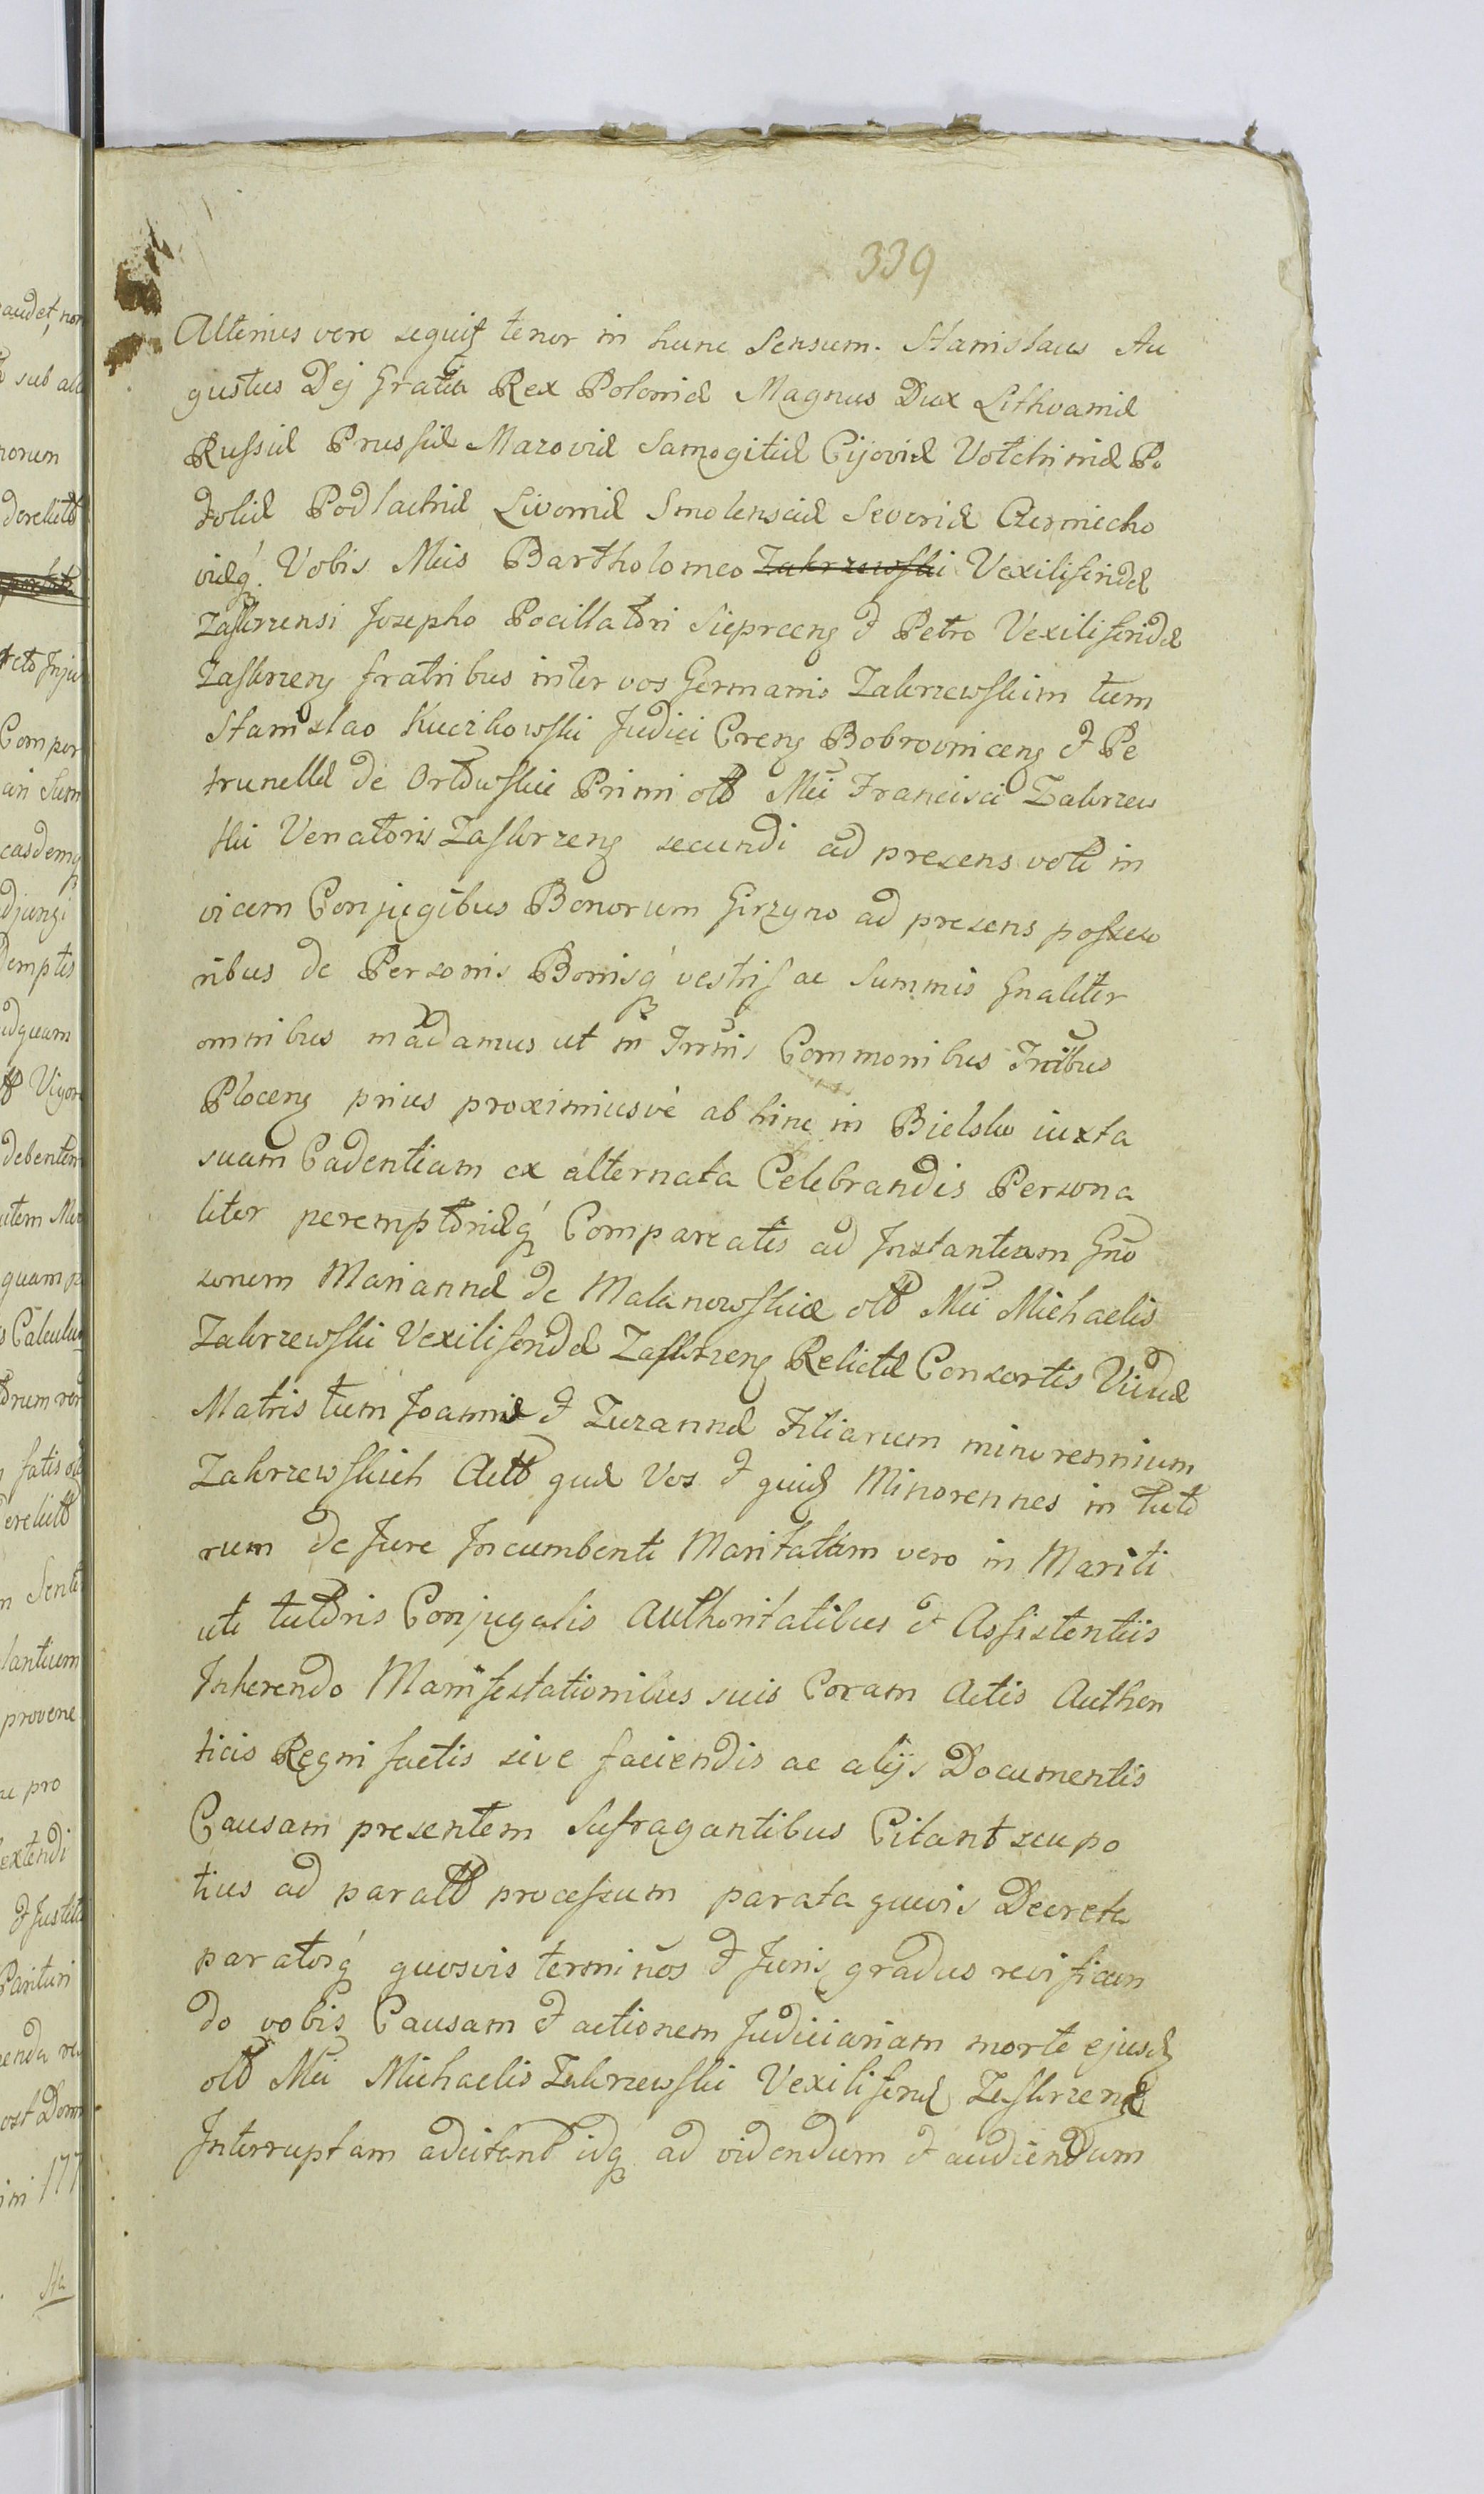 339
Alterius vero sequit tenor in hunc Sensum. Stanislaus Au
gustus Dej Gratia Rex Poloniæ Magnus Dux Lithvaniæ
Russiæ Prussiæ Mazoviæ Samogitiæ Cijoviæ Volchiniæ Po
doliæ Podlachiæ Livoniæ Smolensciæ Severiæ Czerniecho
viæq́. Vobis Mcis Bartholomeo Zakrzewski Vexiliferidæ
Zaskrzensi Josepho Pocillatori Sieprceng et Petro Vexiliferidæ
Zaskrzeng fratribus inter vos Germanis Zakrzewskim tum
Stanislao Kuczkowski Judici Creng Bobrovniceng et Pe
trunellæ de Ortowskie Primi olb Mci Francisci Zakrzew
ski Venatoris Zaskrzeng secundi ad presens voti in
vicem Conjugibus Bonorum Girzyno ad presens posseso
ribus de Personis Bonisq́ vestris ac Summis Gnaliter
omnibus mādamus ut in Trmis Commonibus Trribus
Ploceng prius proximiusvè ab hinc in Bielsko iuxta
suam Cadentiam ex alternata Celebrandis Persona
liter peremptoriæq́ Compareatis ad Jnstantiam Gno
sorum Mariannæ de Malanowskie olb Mci Michaelis
Zakrzewski Vexiliferidæ Zaskrzeng Relictæ Consortis Viduæ
Matris tum Joannæ et Zuzannæ Filiarum minorennium
Zakrzewskich Actb quæ Vos et quid Minorennes in Tuto
rum de Jure Jncumbenti Maritatam vero in Mariti
uti tutoris Conjugalis Authoritatibus et Assistentiis
Jnherendo Manifestationibus suis Coram Actis Authen
ticis Regni factis sive faciendis ac alijs Documentis
Causam presentem Sufragantibus Citant seu po
tius ad paratb processum parata quævis Decreta
paratosq́ quosvis terminos et Juris gradus revifican
do vobis Causam et actionem Judiciariam morte ejusd
olb Mci Michaelis Zakrzewski Vexiliferid Zaskrzeng
Interruptam adcitant idq ad videndum et audiendum